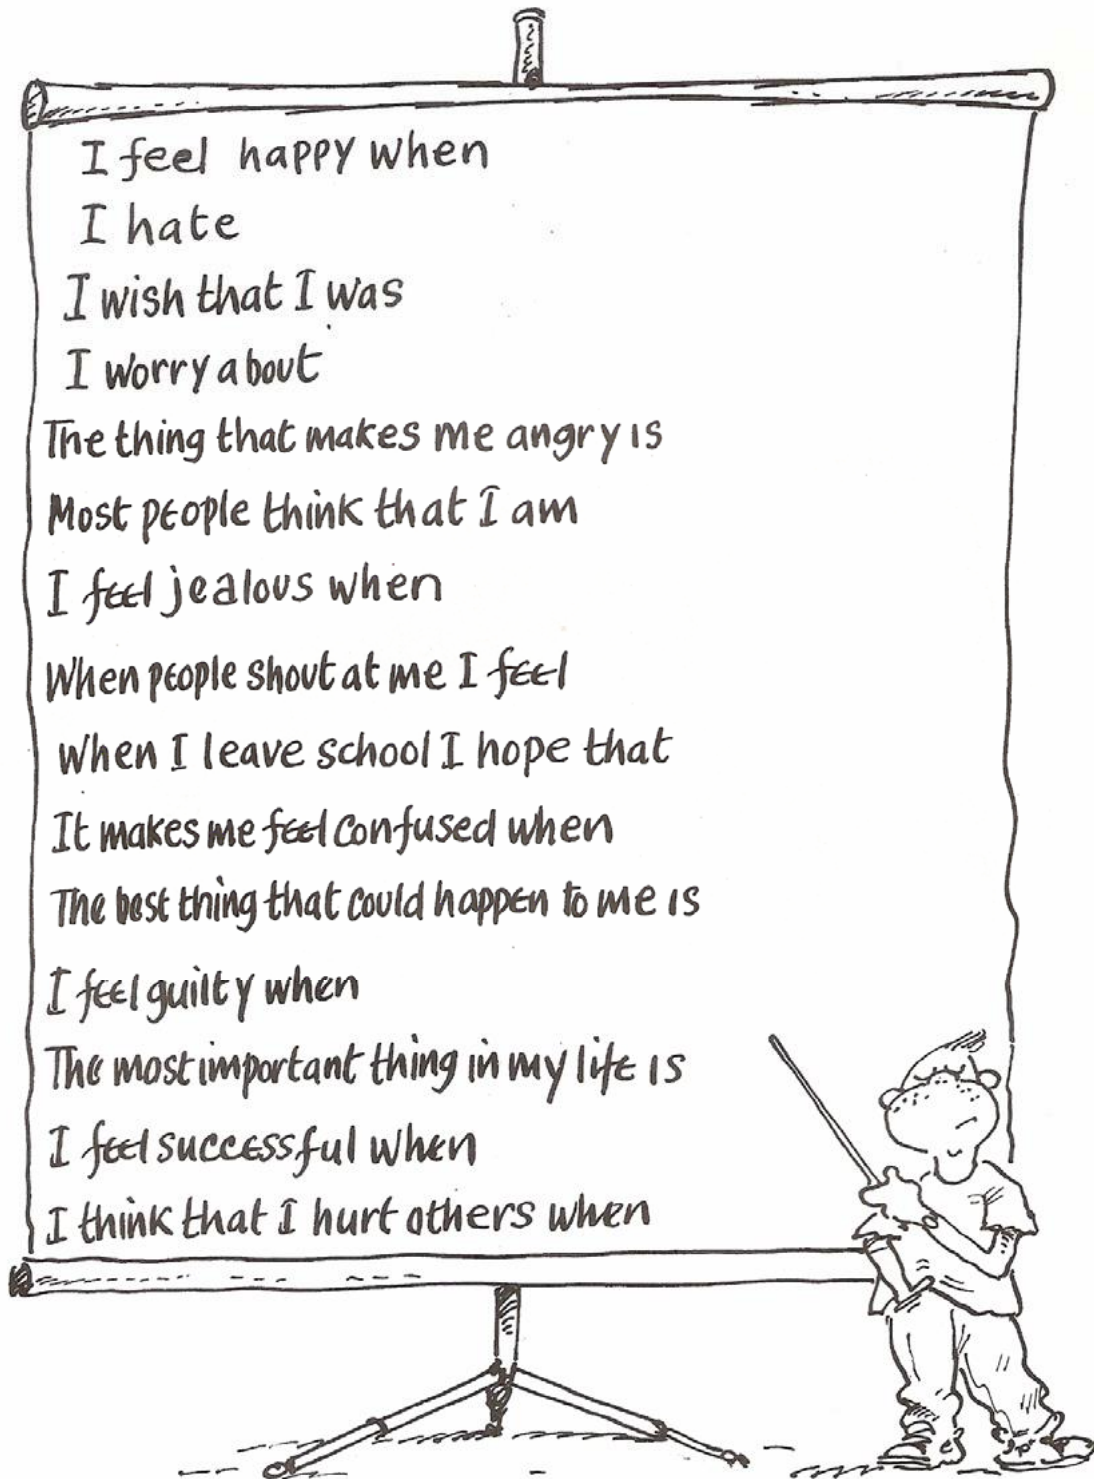 I feel happy when
I hate
I wish that I was
I worry about
The thing that makes me angry is
Most people think that I am
I feel jealous when
When people shout at me I feel
When I leave school I hope that
It makes me feel confused when
The best thing that could happen to me is
I feel guilty when
The most important thing in my life is
I feel successful when
I think that I hurt others when